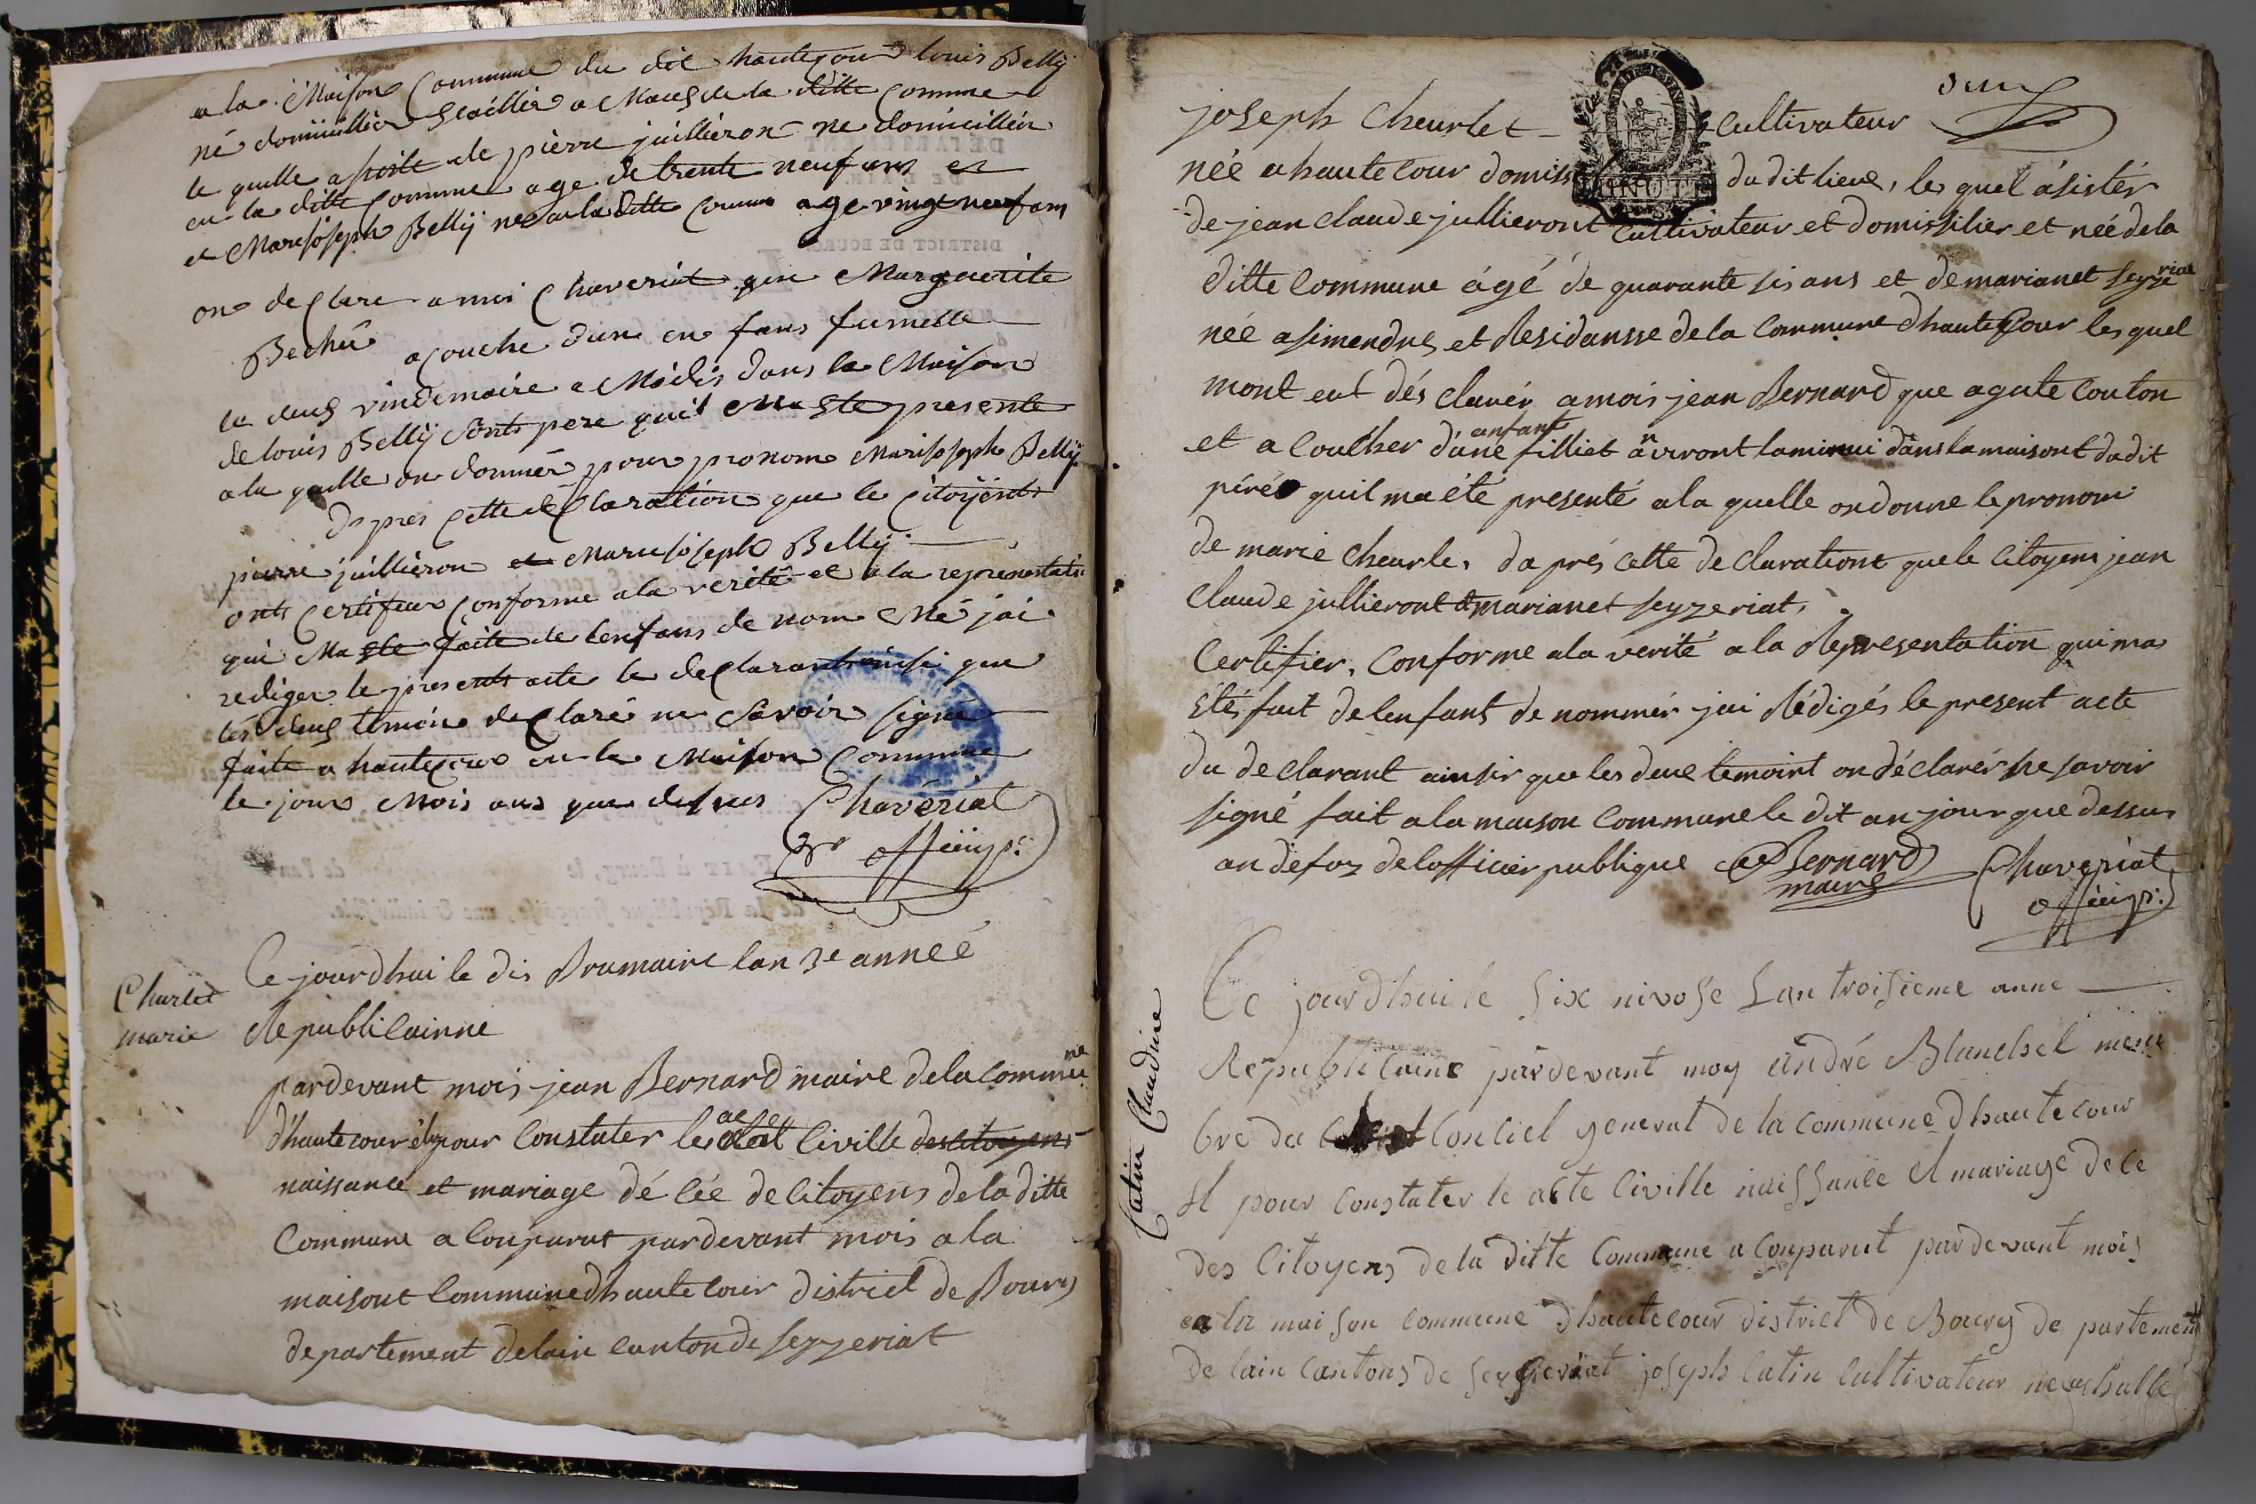 a la Maison Commune du dit hautecour louis Belly
né domicillier a de la ditte Commune
le quelle asisté de pierre juillieron né domicillier
en la ditte Commune age de trente neuf ans et
et Mariejoseph Belly née en la ditte Comune age vingt neuf ans
on declare a moi Chaveriat que Marguerite
Bechû acouche d'un en fans fumelle
le deus vindemaire a Midis dans la Maison
de louis Belly sont pere quil Ma Ete presente
a la quelle on donner pour pronom Marijoseph Belly
dapres Cette déClaration que le Citoÿens
pierre juillieron et Mariejoseph Belly
onts Certifier Conforme a la verité et a la representatio
qui Ma Ete faite de lenfans de nom Mé jai
rediger le presents acte le declarant ainsi que
les deus temóin declaré ne savoir signé
faite a hautecour en la Maison Commune
le jour Mois ans que desus Chavériat
offici p:
Charlet
marie
Ce jourdhui le dis Brumaire lan 3e année
Republicainne
pardevant mois jean Bernard maire dela Commune
d'hautecour élu pour Constater les acte Civille des citoyens
naissance et mariage dé cée de Citoyens dela ditte
Commune a Conparut pardevant mois a la
maisont Commune dhautecour district de Bourg
departement delain canton de seyzeriat
deux
joseph Cheurlet - cultivateur
née a hautecour domiss du dit lieue, le quel ásistér
de jean claude jullieront Cultivateur et domissilier et née de la
ditte Commune ágé de quarante sis ans et de marianet seyzeriat
née a simandre et Residansse de la Commune dhautecour lesquel
mont eut dés clarér a mois jean Bernard que agate Couton
et a Coucher d'une enfant filliet anviront laminui dans la maisont dudit
pérés quil ma été presenté a la quelle ondonne le pronom
de marie Cheurle, daprés cette de clarationt que le Citoyens jean
Claude jullieront et marianet seyzeriat,
Certifier, Conforme ala verité a la Representation qui ma
étés fait de lenfant de nommér jai Rédigés le present acte
du declarant ainsir que les deue temoint on déclarér ne savoir
signé fait ala maison Commune le dit an jour que dessus
an defoz delofficier publique Bernard Chaveriat
maire offici p:
Catin Claudine
Ce jourdhui le six nivose Lan troisieme anne
Republicaine pardevant moy andré Blanchet mem
bre du Conciel general de la Commune dhautecour
El pour Constater le acte Civille naissance El mariage De ce
des Citoyens de la ditte Commune a Conparut pardevant mois
a la maison commune dhautecour district de Bourg de partement
de lain Cantons de seyzeriat joseph Catin Cultivateur